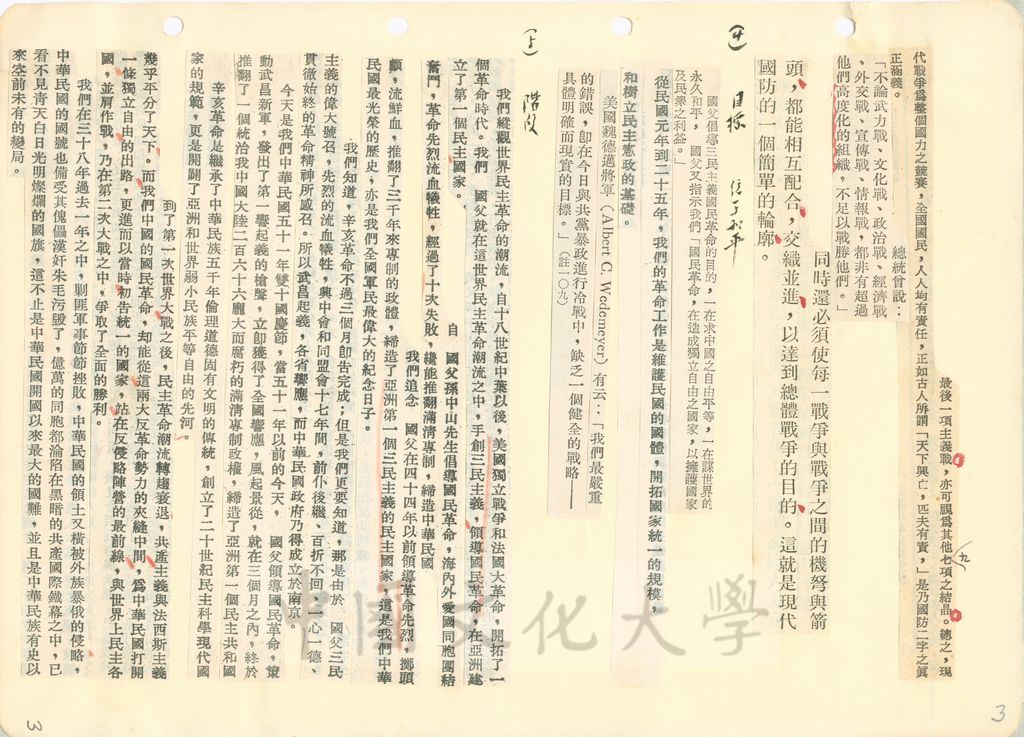 最後一項主義戰，亦可視爲其他七項之結晶。總之，現
九
代戰爭爲整個國力之競賽，全國國民，人人均有責任，正如古人所謂「天下興亡，匹夫有責，」是乃國防二字之眞
正涵義。
總統曾說：
「不論武力戰、文化戰、政治戰、經濟戰
、外交戰、宣傳戰、情報戰，都非有超過
他們高度化的組織，不足以戰勝他們。」
同時還必須使每一戰爭與戰爭之間的機弩與箭
頭，都能相互配合，交織並進，以達到總體戰爭的目的。這就是現代
國防的一個簡單的輪廓。
目標
國父倡導三民主義國民革命的目的，一在求中國之自由平等，一在謀世界的
永久和平，國父又指示我們「國民革命，在造成獨立自由之國家，以擁護國家
及民衆之利益。」
從民國元年到二十五年，我們的革命工作是維護民國的國體，開拓國家統一的規模，
和樹立民主憲政的基礎。
美國魏德邁將軍（Albert C. Wedemeyer）有云：「我們最嚴重
的錯誤，卽在今日與共黨暴政進行冷戰中，缺乏一個健全的戰略——
具體明確而現實的目標。」（註一〇九）
階段
我們縱觀世界民主革命的潮流，自十八世紀中葉以後，美國獨立戰爭和法國大革命，開拓了一
個革命時代。我們　國父就在這世界民主革命潮流之中，手創三民主義，領導國民革命，在亞洲建
立了第一個民主國家。
自　國父孫中山先生倡導國民革命，海內外愛國同胞團結
奮鬥，革命先烈流血犧牲，經過了十次失敗，纔能推翻滿清專制，締造中華民國
我們追念　國父在四十四年以前領導革命先烈，擲頭
顱，流鮮血，推翻了三千年來專制的政體，締造了亞洲第一個三民主義的民主國家，這是我們中華
民國最光榮的歷史，亦是我們全國軍民最偉大的紀念日子。
我們知道，辛亥革命不過三個月卽告完成；但是我們更要知道，那是由於　國父三民
主義的偉大號召，先烈的流血犧牲，興中會和同盟會十七年間，前仆後繼、百折不回、一心一德、
貫徹始終的革命精神所感召。所以武昌起義，各省響應，而中華民國政府乃得成立於南京。
今天是我們中華民國五十一年雙十國慶節，當五十一年以前的今天，　國父領導國民革命，策
動武昌新軍，發出了第一響起義的槍聲，立卽獲得了全國響應，風起景從，就在三個月之內，終於
推翻了一個統治我中國大陸二百六十六龐大而腐朽的滿淸專制政權，締造了亞洲第一個民主共和國
辛亥革命是繼承了中華民族五千年倫理道德固有文明的傳統，創立了二十世紀民主科學現代國
家的規範，更是開闢了亞洲和世界弱小民族平等自由的先河。
到了第一次世界大戰之後，民主革命潮流轉趨衰退，共產主義與法西斯主義
幾乎平分了天下。而我們中國的國民革命，却能從這兩大反革命勢力的夾縫中間，爲中華民國打開
一條獨立自由的出路，更進而以當時初告統一的國家，站在反侵略陣營的最前線，與世界上民主各
國，並肩作戰，乃在第二次大戰之中，爭取了全面的勝利。
我們在三十八年過去一年之中，剿匪軍事節節挫敗，中華民國的領土又橫被外族暴俄的侵略，
中華民國的國號也備受其傀儡漢奸朱毛污衊了，億萬的同胞都淪陷在黑暗的共產國際鐵幕之中，已
看不見靑天白日光明燦爛的國旗，這不止是中華民國開國以來最大的國難，並且是中華民族有史以
來空前未有的變局。
中國文化大學
3
3